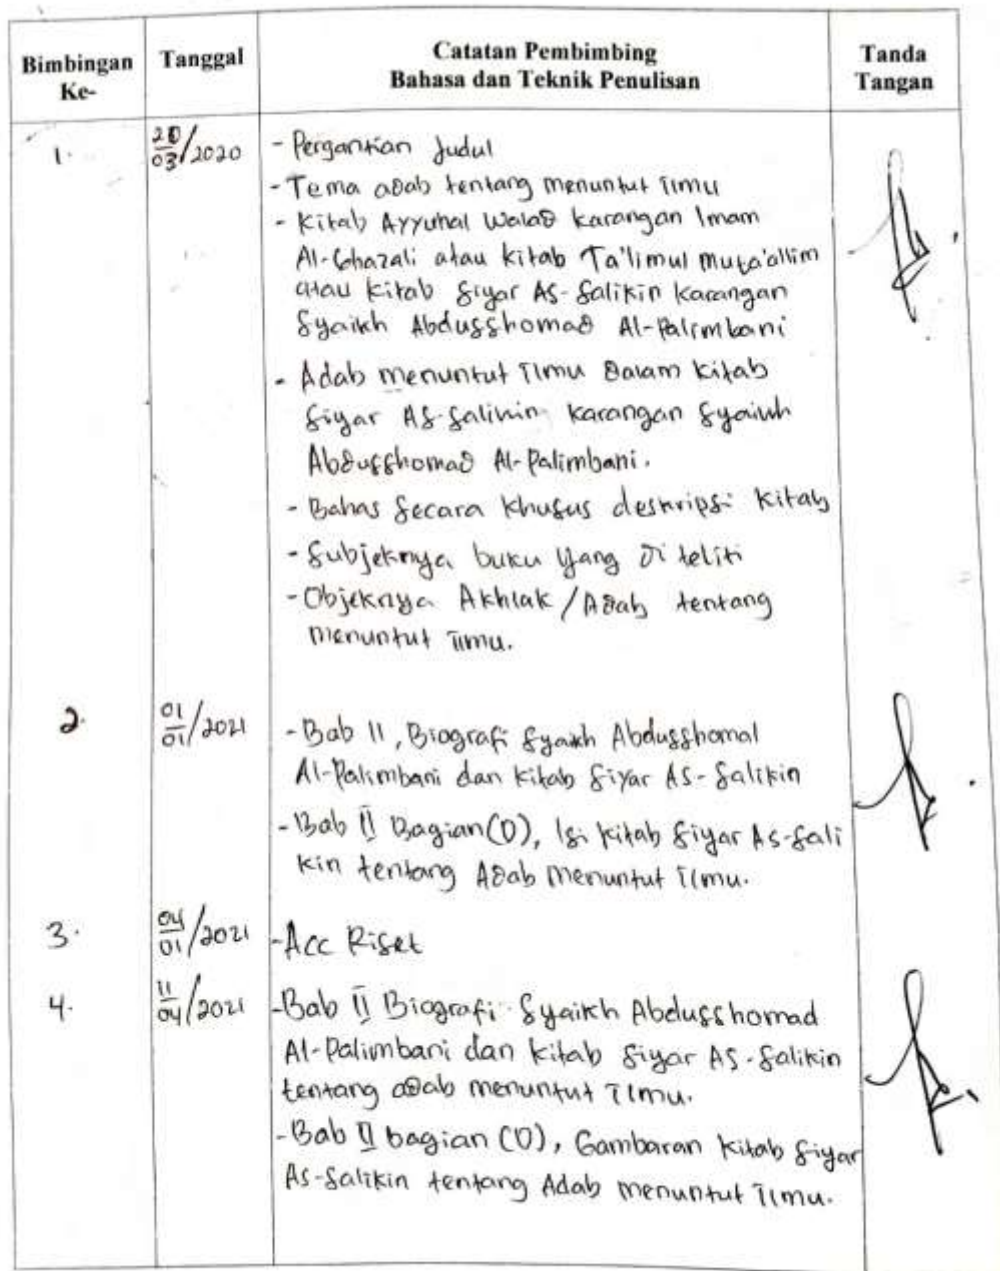 Bimbingan Ke-
Tanggal
Catatan Pembimbing
Bahasa dan Teknik Penulisan
Tanda Tangan
1.
20/03/2020
- Pergantian Judul
- Tema adab tentang menuntut ilmu
- Kitab Ayyuhal Walad karangan Imam
Al-Ghazali atau kitab Ta'limul muta'allim
atau kitab Siyar As-Salikin karangan
Syaikh Abdusshomad Al-Palimbani
- Adab menuntut ilmu dalam kitab
Siyar As-Salikin karangan Syaikh
Abdusshomad Al-Palimbani.
- Bahas Secara khusus deskripsi kitab
- Subjeknya buku yang di teliti
- Objeknya Akhlak / Adab tentang
menuntut ilmu.
2.
01/01/2021
- Bab II, Biografi Syaikh Abdusshomad
Al-Palimbani dan kitab Siyar As-Salikin
- Bab II Bagian (D), Isi kitab Siyar As-Sali
kin tentang Adab menuntut ilmu.
3.
04/01/2021
- Acc Riset
4.
11/04/2021
- Bab II Biografi Syaikh Abdusshomad
Al-Palimbani dan kitab Siyar As-Salikin
tentang adab menuntut ilmu.
- Bab II bagian (D), Gambaran kitab Siyar
As-Salikin tentang Adab menuntut ilmu.